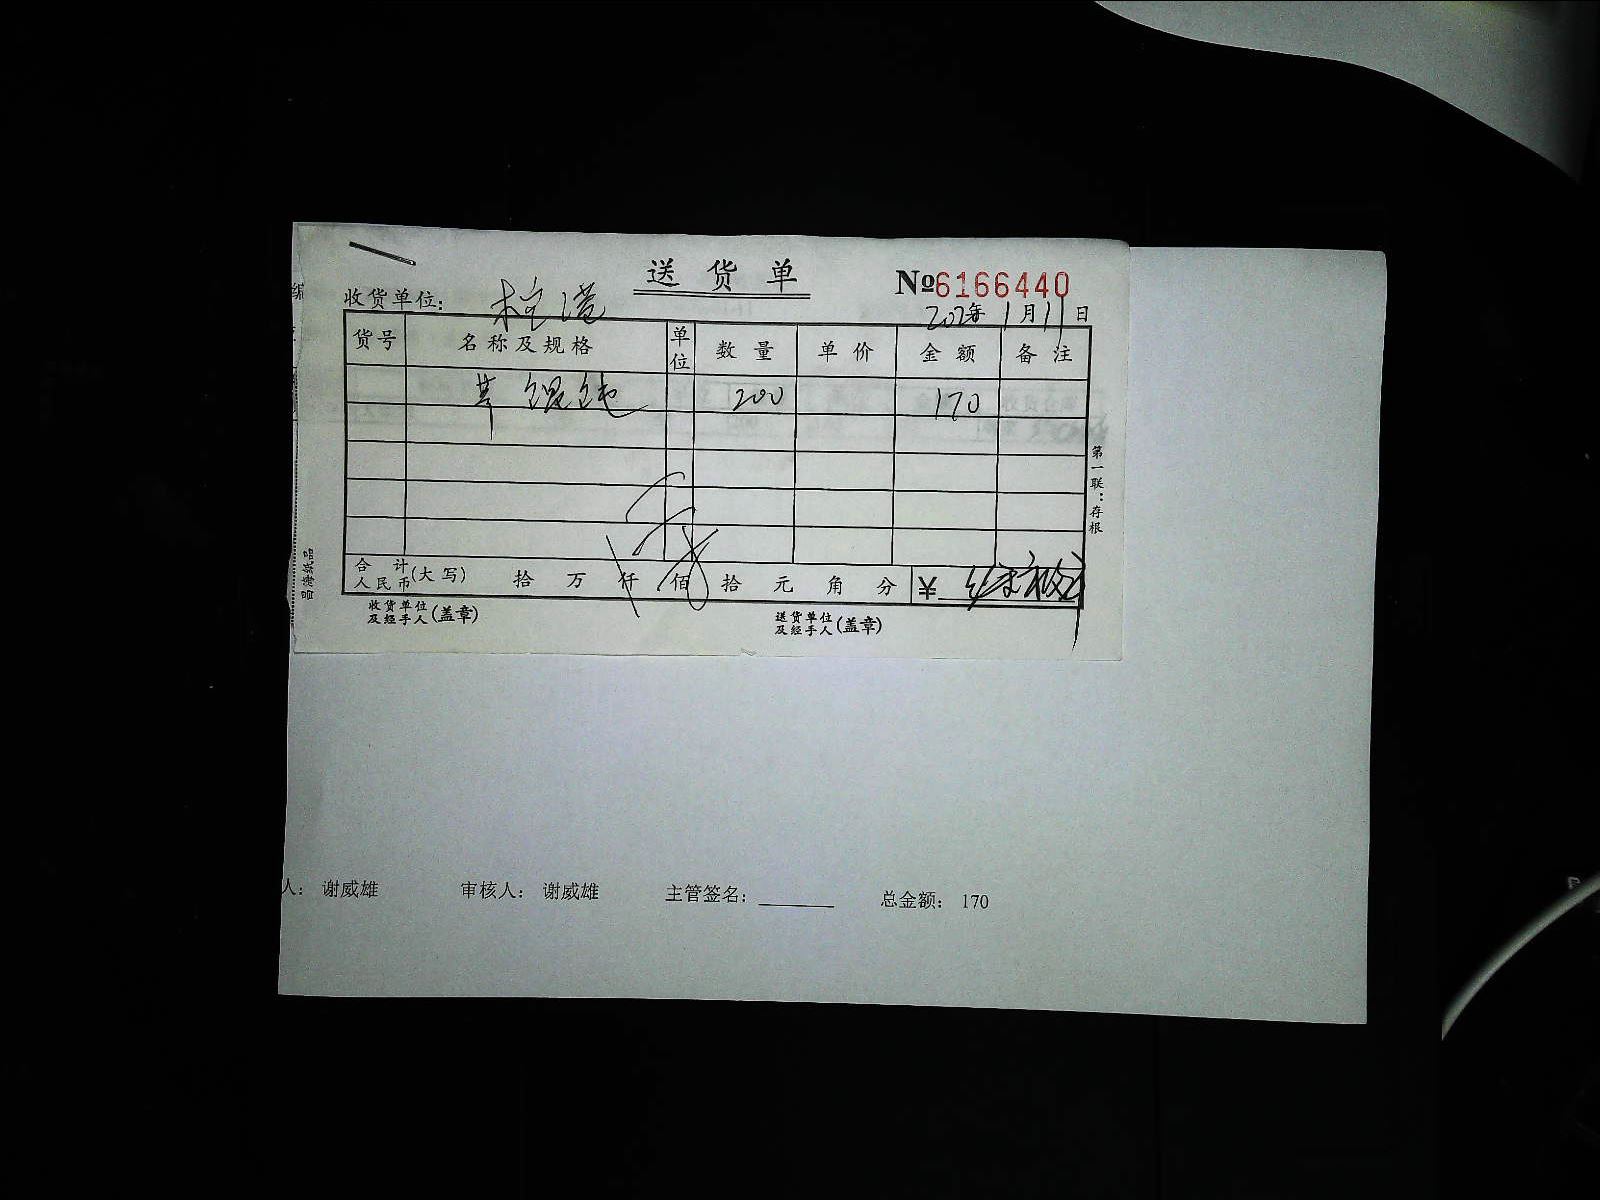 送货单
No6166440
收货单位:
1月11日
货号 名称及规格 单位 数量 单价 金额 备注
馄饨 200 170
第一联:存根
合计人民币(大写) 拾 万 仟 佰 拾 元 角 分 ¥
收货单位及经手人(盖章) 送货单位及经手人(盖章)
昌浦纸品
人: 谢威雄 审核人: 谢威雄 主管签名: 总金额: 170